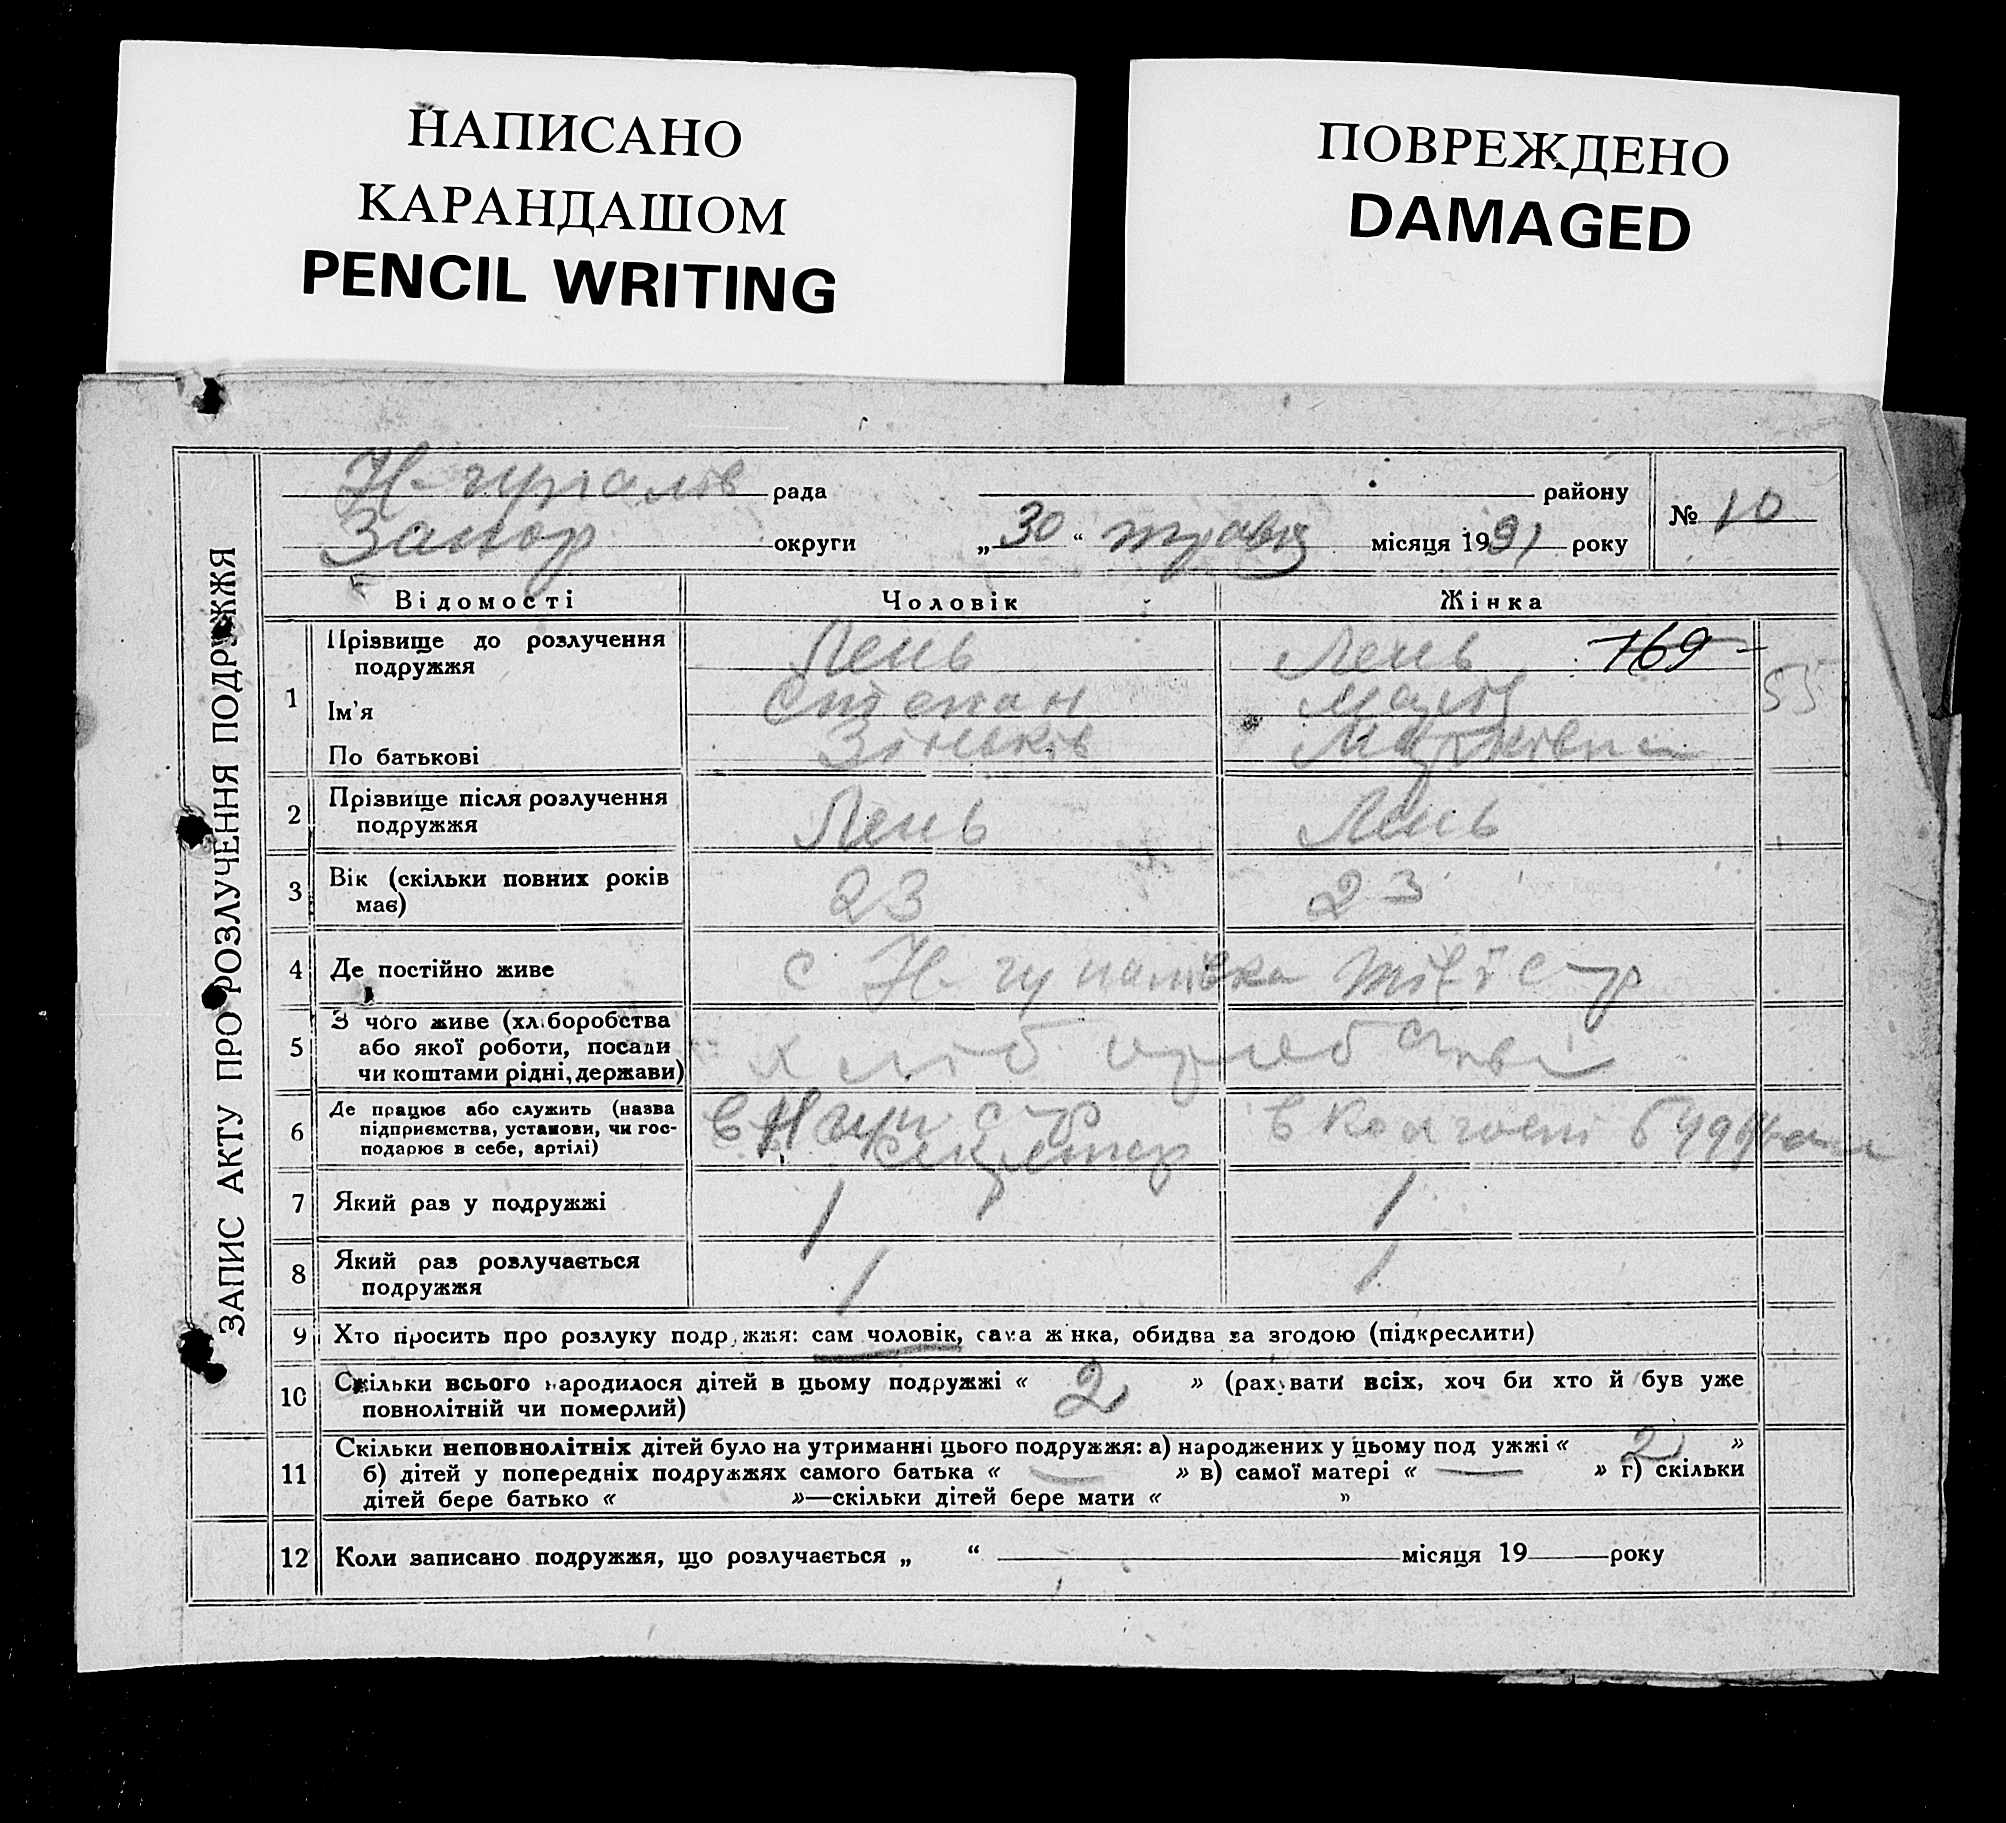 НАПИСАНО
КАРАНДАШОМ
PENCIL WRITING
ПОВРЕЖДЕНО
DAMAGED
ЗАПИС АКТУ ПРО РОЗЛУЧЕННЯ ПОДРУЖЖЯ
рада району № 10
Запор округи „30“ травня місяця 1931 року
Відомості Чоловік Жінка
1 Прізвище до розлучення подружжя Лень Лень 169
55
Ім'я Степан
По батькові Зіньків Марківна
2 Прізвище після розлучення
подружжя Лень Лень
3 Вік (скільки повних років
має) 23 23
4 Де постійно живе с Н-гупалівка
5 З чого живе (хліборобства
або якої роботи, посади
чи коштами рідні, держави)
6 Де працює або служить (назва
підприємства, установи, чи гос-
подарює в себе, артілі) секретар в колгоспі
7 Який раз у подружжі 1 1
8 Який раз розлучається
подружжя 1 1
9 Хто просить про розлуку подружжя: сам чоловік, сама жінка, обидва за згодою (підкреслити)
10 Скільки всього народилося дітей в цьому подружжі « 2 » (рахувати всіх, хоч би хто й був уже
повнолітній чи померлий)
11 Скільки неповнолітніх дітей було на утриманні цього подружжя: а) народжених у цьому подружжі « 2 »
б) дітей у попередніх подружжях самого батька « — » в) самої матері « — » г) скільки
дітей бере батько « »—скільки дітей бере мати « »
12 Коли записано подружжя, що розлучається „ “ місяця 19 року